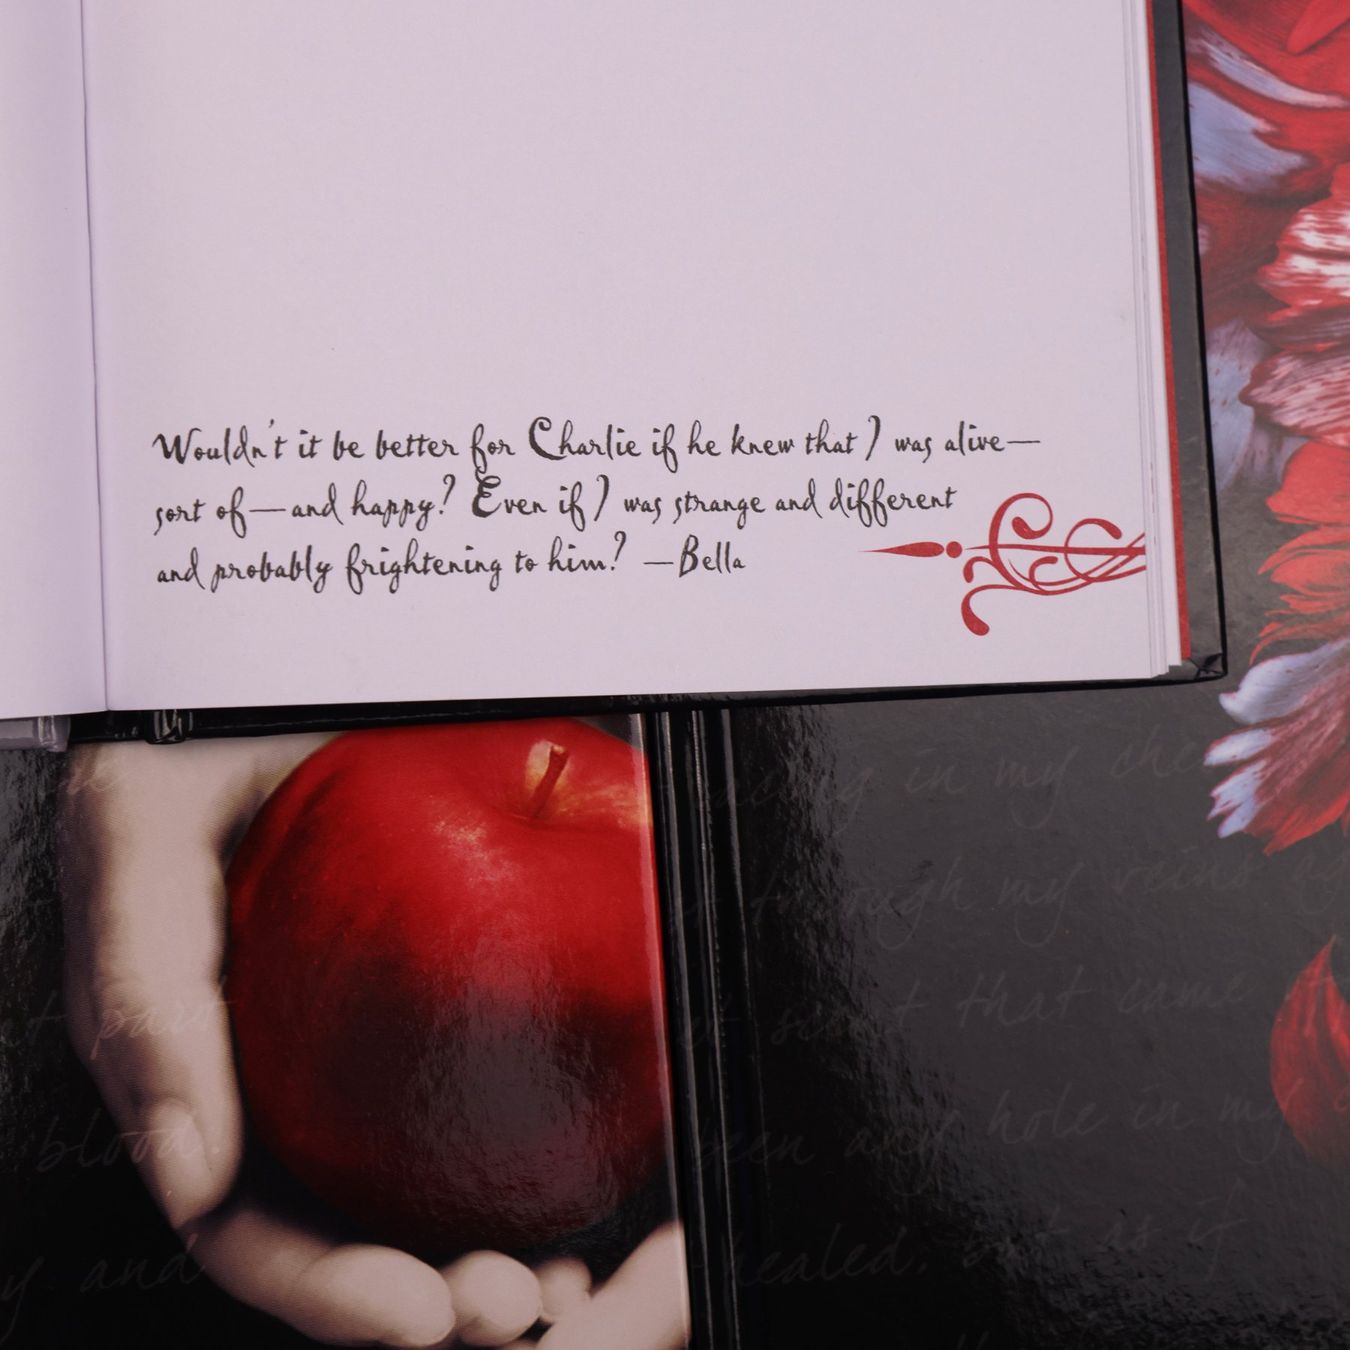 Wouldn't it be better for Charlie if he knew that I was alive—
sort of—and happy? Even if I was strange and different
and probably frightening to him? —Bella
in my
through my veins
t part
scent that came
blood.
been any hole in my
y and
healed, but as if